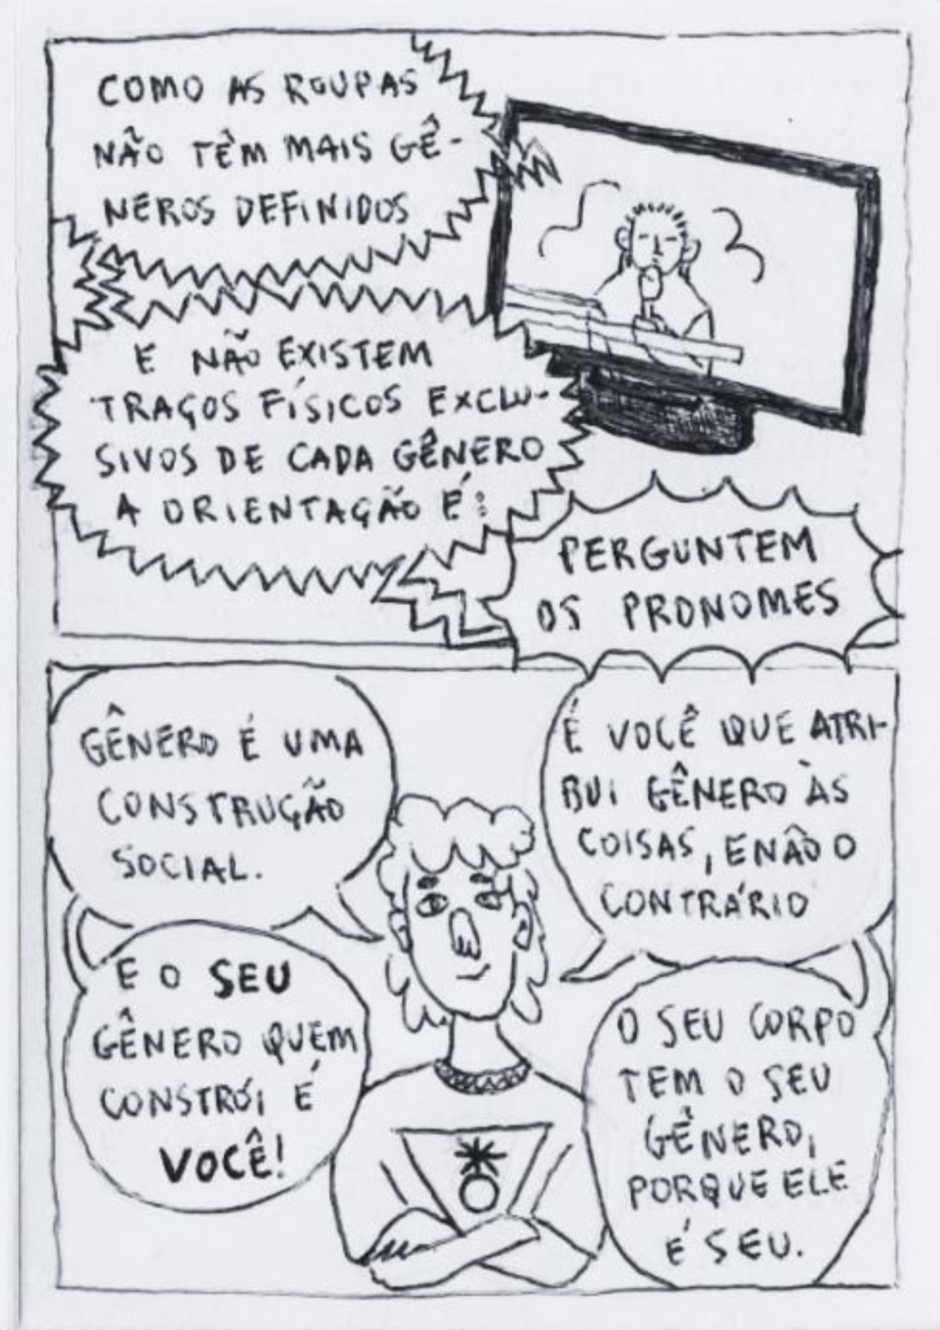 COMO AS ROUPAS
NÃO TÊM MAIS GÊ-
NEROS DEFINIDOS
E NÃO EXISTEM
TRAÇOS FÍSICOS EXCLU-
SIVOS DE CADA GÊNERO
A ORIENTAÇÃO É:
PERGUNTEM
OS PRONOMES
GÊNERO É UMA
CONSTRUÇÃO
SOCIAL.
E O SEU
GÊNERO QUEM
CONSTRÓI É
VOCÊ!
É VOCÊ QUE ATRI-
BUI GÊNERO ÀS
COISAS, E NÃO O
CONTRÁRIO
O SEU CORPO
TEM O SEU
GÊNERO,
PORQUE ELE
É SEU.